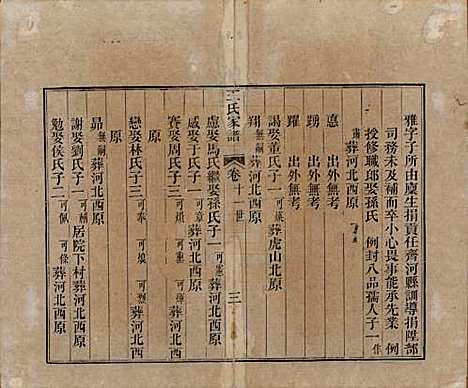 雅字子所由廩生捐貢任齊河縣訓導捐陞部
司務未及補而卒小心畏事能承先業 例
授修職郎娶孫氏 例封八品孺人子一 作
葬河北西原
憙 出外無考
踴 出外無考
躍 出外無考
翔 無嗣 葬河北西原
謁娶董氏子一 葬虎山北原
王氏家譜 卷 十一世 三
慮娶馬氏繼娶孫氏子一
感娶于氏子一 可章 葬河北西原
賽娶周氏子三 葬河北西
原
戀娶林氏子三 可奉 葬河北西
原
昴 無嗣 葬河北西原
謝娶劉氏子一 居院下村葬河北西原
勉娶侯氏子二 可佩 葬河北西原